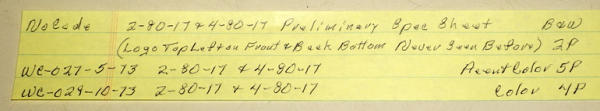 No Code 2-80-17 & 4-80-17 Preliminary Spec Sheet B&W
(Logo Top Left on Front & Back Bottom Never Seen Before) 2P
WC-027-5-73 2-80-17 & 4-80-17 Accent Color 5P
WC-029-10-73 2-80-17 & 4-80-17 Color 4P